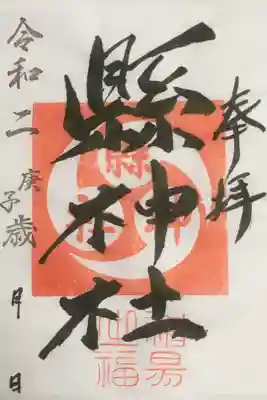 奉拝
縣神社
令和二庚子歳 月 日
縣神社